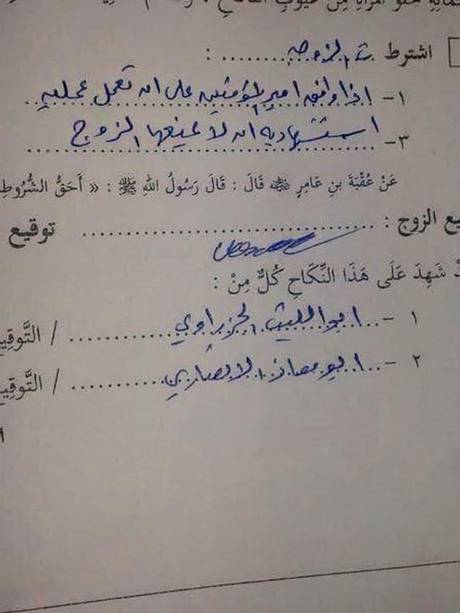 اشترط ت الزوجه :
١- اذا وافق امير المؤمنين على ان تعمل عمليه
٣- استشهاديه ان لا يمنعها الزوج
عَنْ عُقْبَةَ بنِ عَامِرٍ ﷺ قَالَ : قَالَ رَسُولُ اللهِ ﷺ : « أَحَقُّ الشُّرُوطِ
يع الزوج : توقيع
شَهِدَ عَلَى هَذَا النِّكَاحِ كُلٌّ مِنْ :
١ - ابو الليث الجزراوي / التَّوقِيع
٢ - ابو معاذ الانصاري / التَّوقِيع